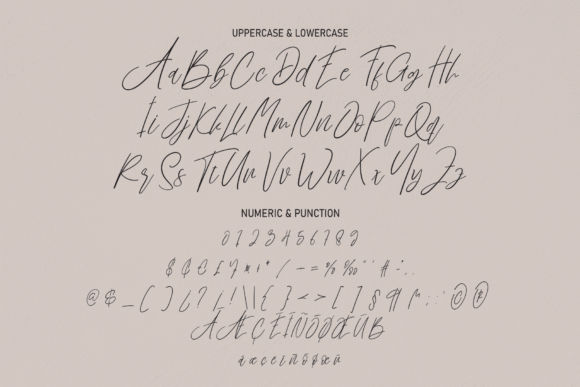 UPPERCASE & LOWERCASE
Aa Bb Cc Dd Ee Ff Gg Hh
Ii Jj Kk Ll Mm Nn Oo Pp Qq
Rr Ss Tt Uu Vv Ww Xx Yy Zz
NUMERIC & PUNCTION
0 1 2 3 4 5 6 7 8 9
$ ¢ € £ ¥ * + / - = % ‰ " ' #
@ $ _ ( ) ¿ ? ¡ ! \ | { } < > [ ] § ¶ © ®
À Æ Ç È Ì Ñ Õ Ø Œ Ù ß